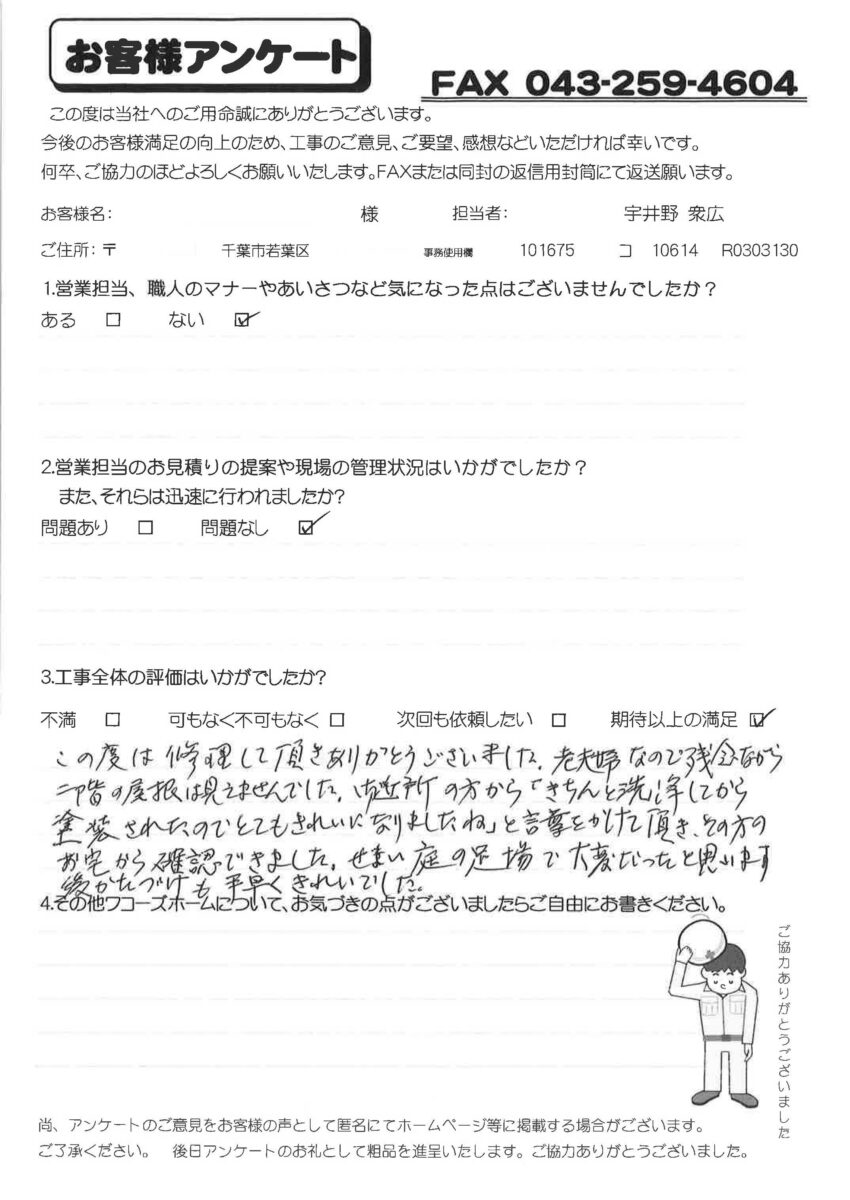 お客様アンケート
FAX 043-259-4604
この度は当社へのご用命誠にありがとうございます。
今後のお客様満足の向上のため、工事のご意見、ご要望、感想などいただければ幸いです。
何卒、ご協力のほどよろしくお願いいたします。FAXまたは同封の返信用封筒にて返送願います。
お客様名: 様 担当者: 宇井野 衆広
ご住所: 〒 千葉市若葉区 事務使用欄 101675 コ 10614 R0303130
1.営業担当、職人のマナーやあいさつなど気になった点はございませんでしたか?
ある □ ない ☑
2.営業担当のお見積りの提案や現場の管理状況はいかがでしたか?
また、それらは迅速に行われましたか?
問題あり □ 問題なし ☑
3.工事全体の評価はいかがでしたか?
不満 □ 可もなく不可もなく □ 次回も依頼したい □ 期待以上の満足 ☑
この度は修理して頂きありがとうございました。老夫婦なので残念ながら
二階の屋根は見えませんでした。御近所の方から「きちんと洗浄してから
塗装されたのでとてもきれいになりましたね」と言葉をかけて頂き、その方の
お宅から確認できました。せまい庭の足場で大変だったと思います
後かたづけも手早くきれいでした。
4.その他ワコーズホームについて、お気づきの点がございましたらご自由にお書きください。
ご協力ありがとうございました
尚、アンケートのご意見をお客様の声として匿名にてホームページ等に掲載する場合がございます。
ご了承ください。 後日アンケートのお礼として粗品を進呈いたします。ご協力ありがとうございました。